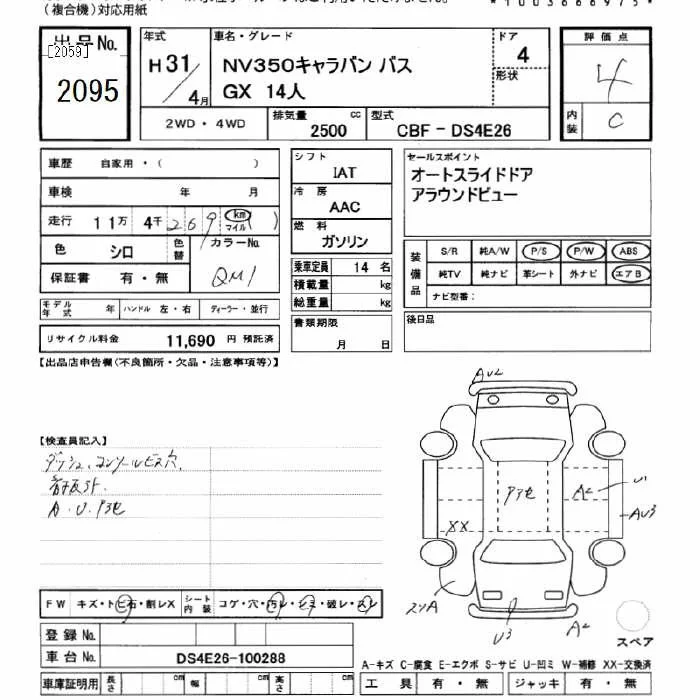 (複合機)対応用紙
出品No.
[2059]
2095
年式
H31/4月
車名・グレード
NV350キャラバン バス
GX 14人
ドア
4
形状
評価点
4
内装
C
2WD・4WD
排気量 2500 cc
型式 CBF-DS4E26
車歴 自家用・( )
車検 年 月
走行 11万 4千 269 km マイル ( )
色 シロ
色替
カラーNo.
QM1
保証書 有・無
モデル年式 年 ハンドル 左・右 ディーラー・並行
リサイクル料金 11,690 円 預託済
シフト
IAT
冷房
AAC
燃料
ガソリン
乗車定員 14 名
積載量 kg
総重量 kg
書類期限
月 日
セールスポイント
オートスライドドア
アラウンドビュー
装備品
S/R 純A/W P/S P/W ABS
純TV 純ナビ 革シート 外ナビ エアB
ナビ型番:
後日品
【出品店申告欄(不良箇所・欠品・注意事項等)】
【検査員記入】
ダッシュ、コンソールビス穴
A・U・P3色
FW キズ・トビ石・割レX シート内装 コゲ・穴・汚レ・シミ・破レ・スレ
登録No.
車台No. DS4E26-100288
車庫証明用 長さ cm 幅 cm 高さ cm
AU2
P3色
A2
U1
AU3
XX
スリA
U3
A2
スペア
A-キズ C-腐食 E-エクボ S-サビ U-凹ミ W-補修 XX-交換済
工具 有・無 ジャッキ 有・無